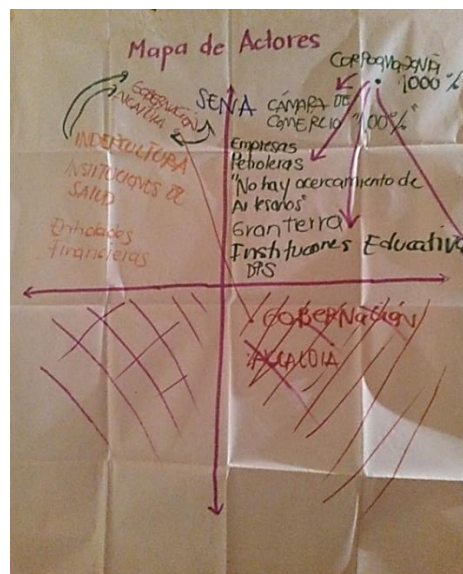 Mapa de Actores
CORPOAMAZONIA
1000 %
GOBERNACIÓN
ALCALDIA
SENA
CÁMARA DE
COMERCIO "100%"
INDERCULTURA
INSTITUCIONES DE
SALUD
Entidades
financieras
Empresas
Petroleras
"No hay acercamiento de
Artesanos"
Gran tierra
Instituciones Educativa
DPS
GOBERNACIÓN
ALCALDIA